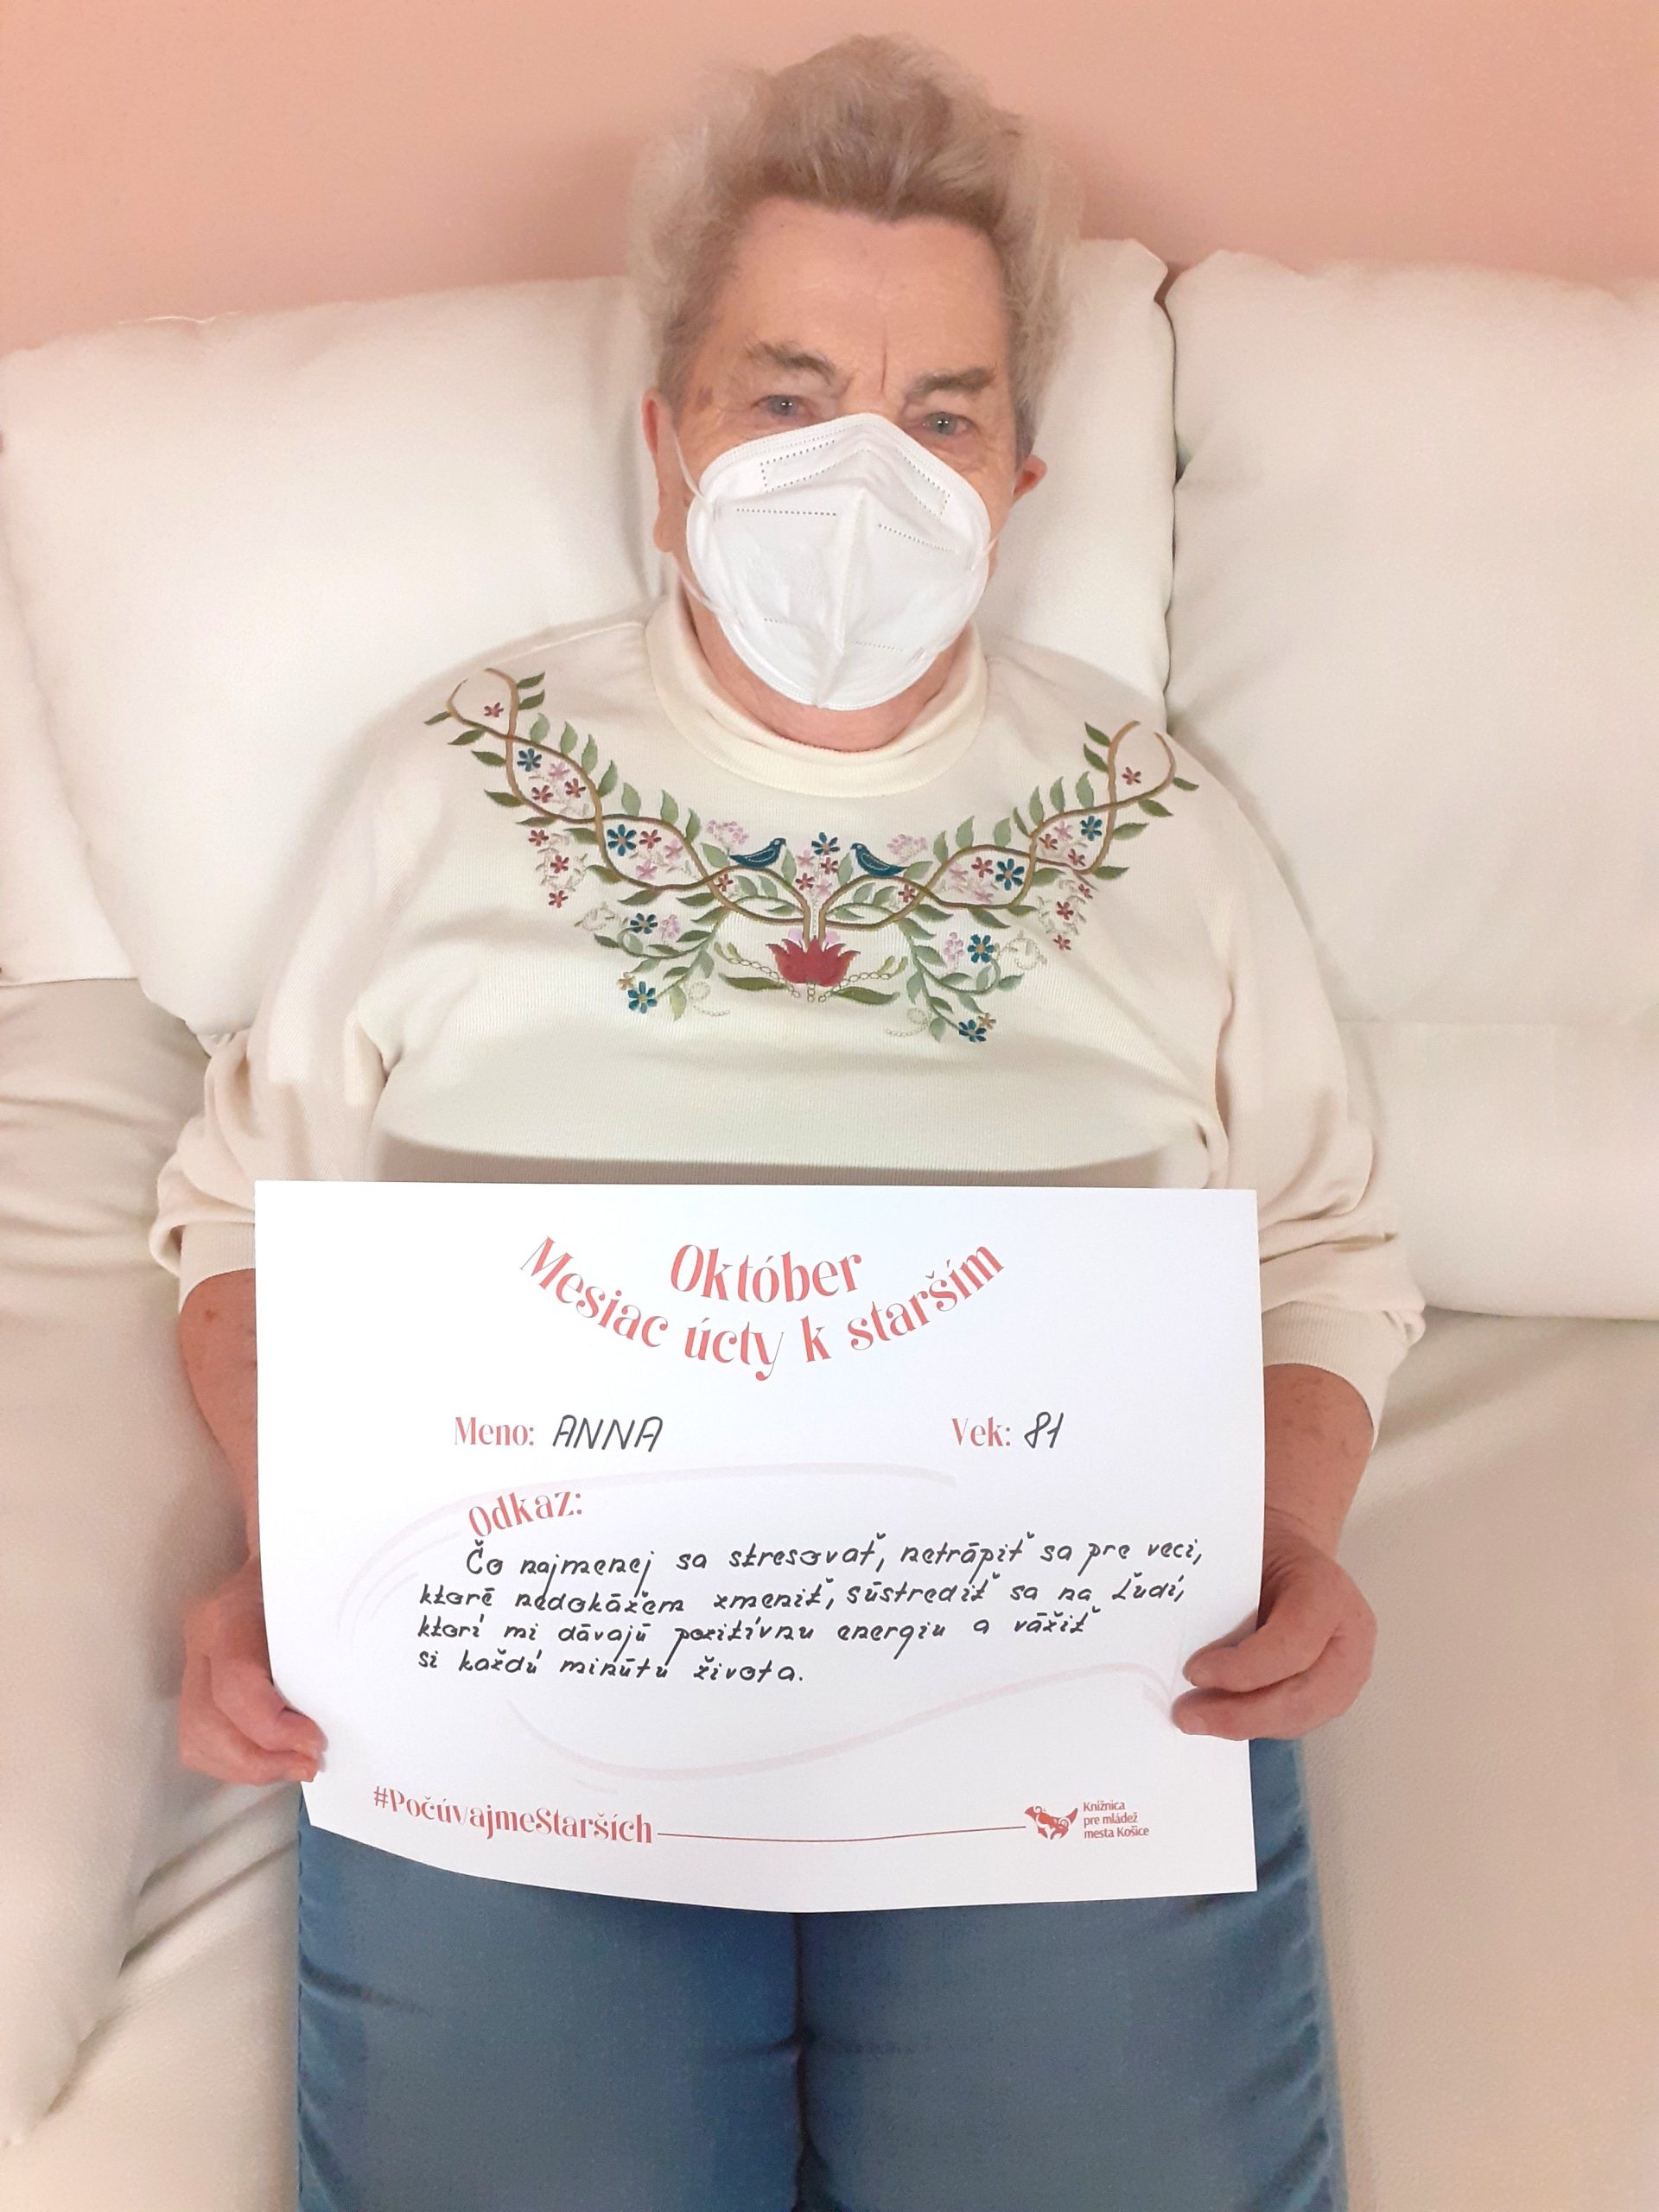 Október
Mesiac úcty k starším
Meno: ANNA
Vek: 81
Odkaz:
Čo najmenej sa stresovať, netrápiť sa pre veci,
ktoré nedokážem zmeniť, sústrediť sa na ľudí,
ktorí mi dávajú pozitívnu energiu a vážiť
si každú minútu života.
#PočúvajmeStarších
Knižnica
pre mládež
mesta Košice